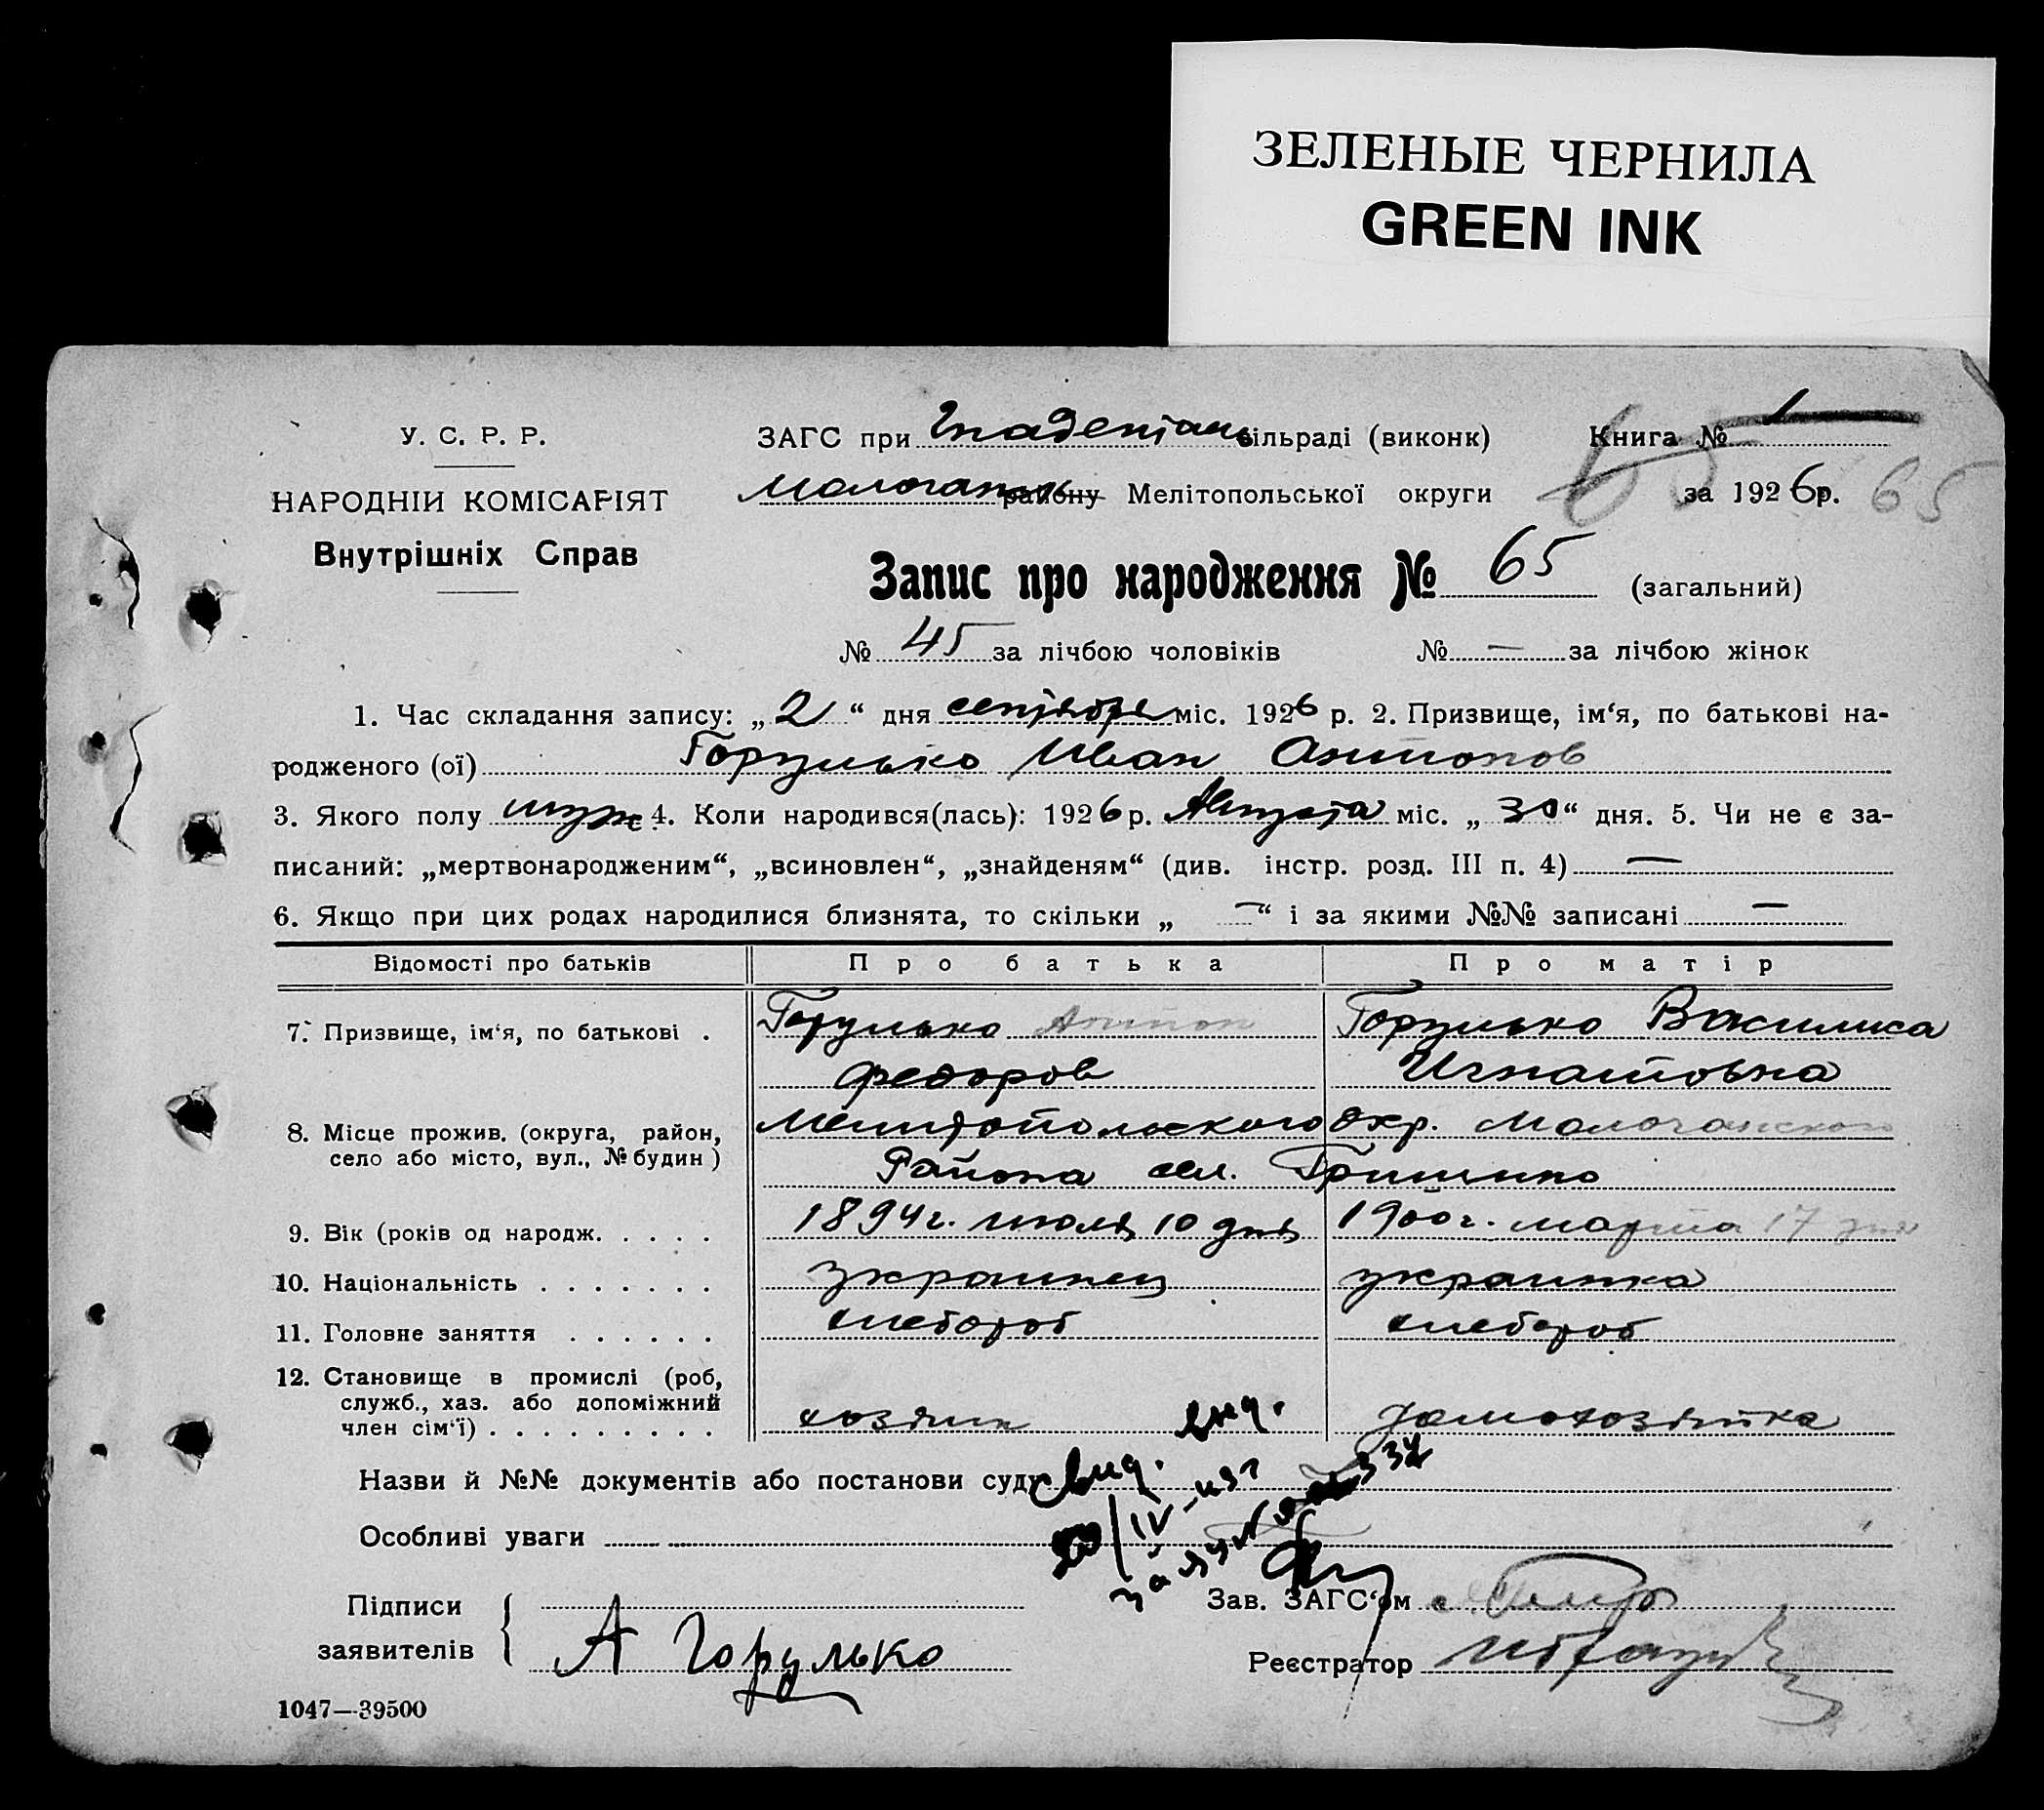 ЗЕЛЕНЫЕ ЧЕРНИЛА
GREEN INK
У. С. Р. Р.
НАРОДНІЙ КОМІСАРІЯТ
Внутрішніх Справ
ЗАГС при Гнаденталь сільраді (виконк) Книга № 1
65
Молочанськ району Мелітопольської округи за 1926р. 65
Запис про народження № 65 (загальний)
№ 45 за лічбою чоловіків № — за лічбою жінок
1. Час складання запису: „2“ дня сентября міс. 1926 р. 2. Призвище, ім‘я, по батькові на-
родженого (ої) Горулько Иван Антонов
3. Якого полу муж 4. Коли народився(лась): 1926 р. Августа міс. „30“ дня. 5. Чи не є за-
писаний: „мертвонародженим“, „всиновлен“, „знайденям“ (див. інстр. розд. III п. 4) —
6. Якщо при цих родах народилися близнята, то скільки „—“ і за якими №№ записані —
Відомості про батьків Про батька Про матір
7. Призвище, ім‘я, по батькові . Горулько Антон Горулько Василиса
Федоров Игнатовна
8. Місце прожив. (округа, район, село або місто, вул., № будин) Мелитопольского Окр. Молочанского
Района сел. Гришино
9. Вік (років од народж. . . . . 1894 г. июля 10 дня 1900 г. марта 17 дня
10. Національність . . . . . . . украинец украинка
11. Головне заняття . . . . . . хлебороб хлебороб
12. Становище в промислі (роб,
служб., хаз. або допоміжний
член сім‘ї) . . . . . . . . . хозяин домохозяйка
Назви й №№ документів або постанови суду
Особливі уваги
Підписи
заявителів А Горулько
Зав. ЗАГС‘ом
Реєстратор
1047—39500